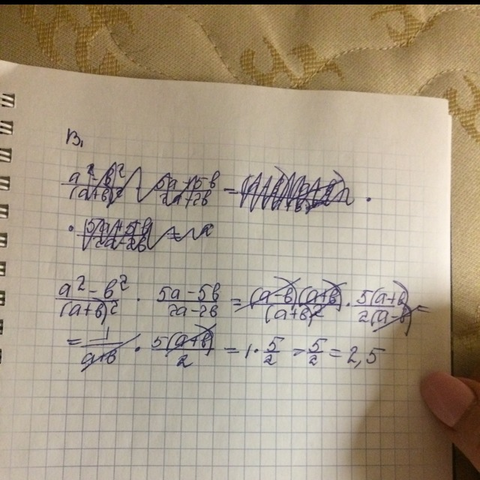 B,
a² - b² / (a+b)² · 5a - 5b / 2a - 2b = (a-b)(a+b) / (a+b)² · 5(a+b) / 2(a-b) =
= 1 / a+b · 5(a+b) / 2 = 1 · 5/2 = 5/2 = 2,5